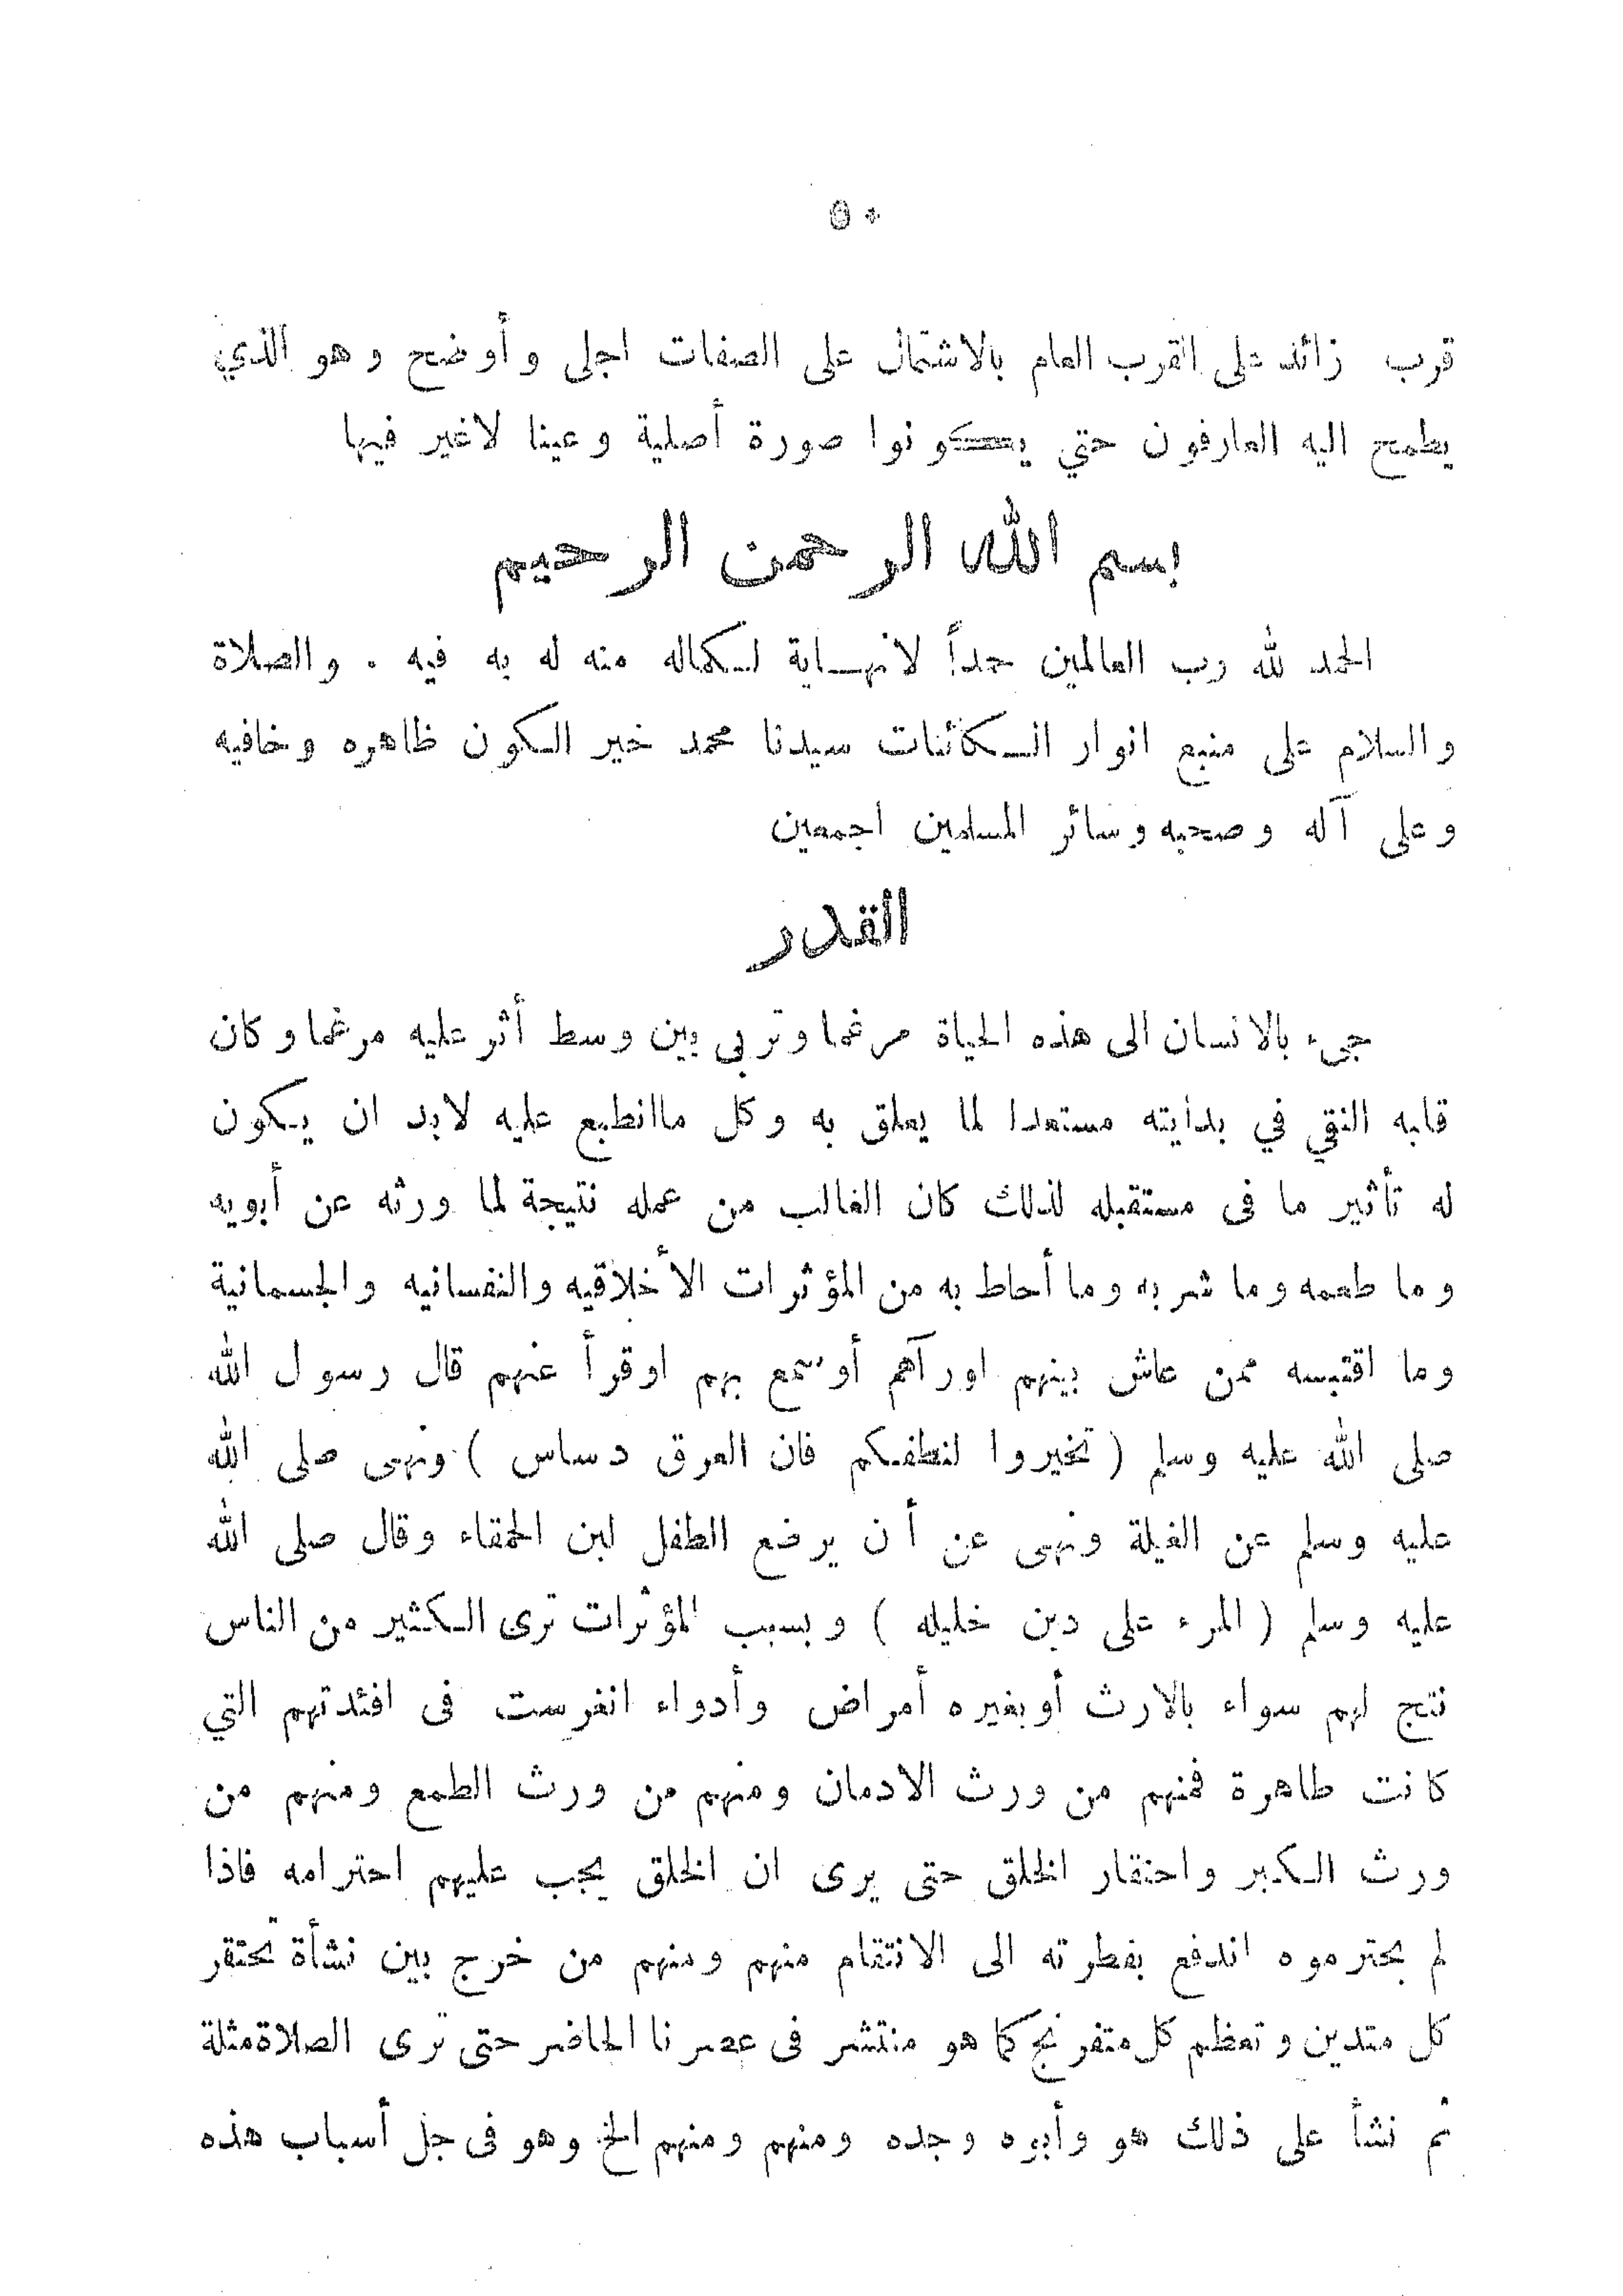 ٥٠
قرب زائد على القرب العام بالاشتمال على الصفات اجلى وأوضح وهو الذي
يطمح اليه العارفون حتي يكونوا صورة أصلية وعينا لاغير فيها
بسم الله الرحمن الرحيم
الحمد لله رب العالمين حمداً لانهاية لكماله منه له به فيه . والصلاة
والسلام على منبع انوار الكائنات سيدنا محمد خير الكون ظاهره وخافيه
وعلى آله وصحبه وسائر المسلمين اجمعين
القدر
جىء بالانسان الى هذه الحياة مرغما وتربى بين وسط أثر عليه مرغما وكان
قلبه النقي في بدايته مستعدا لما يعلق به وكل ماانطبع عليه لابد ان يكون
له تأثير ما فى مستقبله لذلك كان الغالب من عمله نتيجة لما ورثه عن أبويه
وما طعمه وما شربه وما أحاط به من المؤثرات الأخلاقيه والنفسانيه والجسمانية
وما اقتبسه ممن عاش بينهم اورآهم أوسمع بهم اوقرأ عنهم قال رسول الله
صلى الله عليه وسلم ( تخيروا لنطفكم فان العرق دساس ) ونهى صلى الله
عليه وسلم عن الغيلة ونهى عن أن يرضع الطفل لبن الحمقاء وقال صلى الله
عليه وسلم ( المرء على دين خليله ) وبسبب المؤثرات ترى الكثير من الناس
نتج لهم سواء بالارث أوبغيره أمراض وأدواء انغرست فى افئدتهم التي
كانت طاهرة فمنهم من ورث الادمان ومنهم من ورث الطمع ومنهم من
ورث الكبر واحتقار الخلق حتى يرى ان الخلق يجب عليهم احترامه فاذا
لم يحترموه اندفع بفطرته الى الانتقام منهم ومنهم من خرج بين نشأة تحتقر
كل متدين وتعظم كل متفرنج كما هو منتشر فى عصرنا الحاضر حتى ترى الصلاةمثلة
ثم نشأ على ذلك هو وأبوه وجده ومنهم ومنهم الخ وهو فى جل أسباب هذه